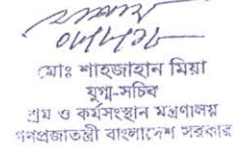 ০৮/৮/১৮
মোঃ শাহজাহান মিয়া
যুগ্ম-সচিব
শ্রম ও কর্মসংস্থান মন্ত্রণালয়
গণপ্রজাতন্ত্রী বাংলাদেশ সরকার